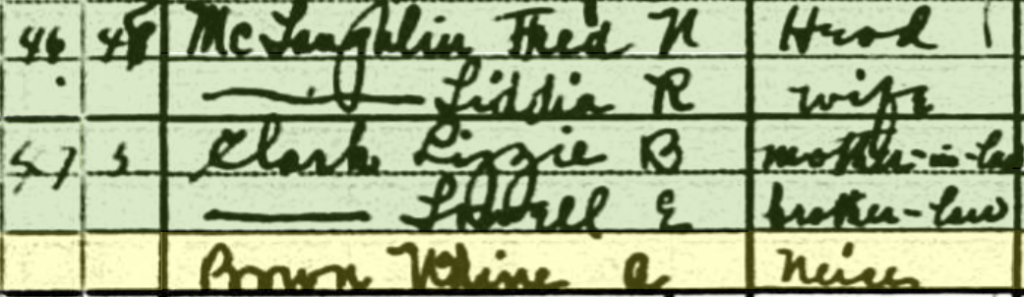 46 48 McLaughlin Fred N Head 1
Liddia R wife
57 5 Clark Lizzie B mother-in-law
Lowell E brother-law
Brown a Neice